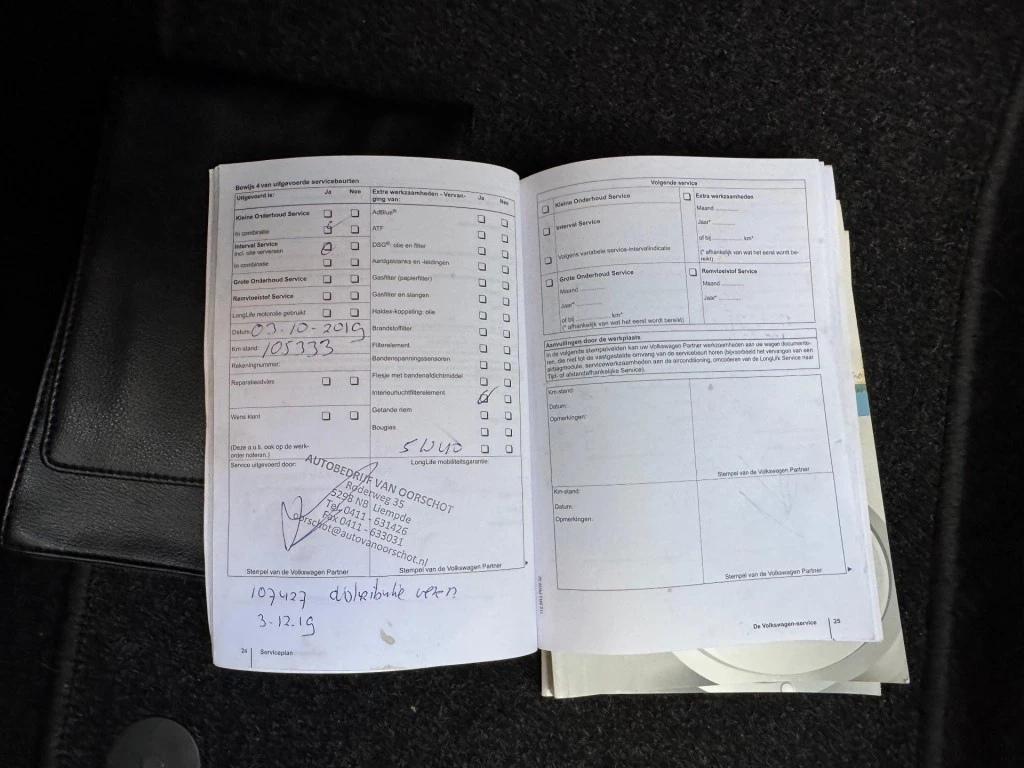 Bewijs 4 van uitgevoerde servicebeurten
Uitgevoerd is:
Ja
Nee
Kleine Onderhoud Service
In combinatie
Interval Service
incl. olie verversen
In combinatie
Grote Onderhoud Service
Remvloeistof Service
LongLife motorolie gebruikt
Datum: 03-10-2019
Km-stand: 105333
Rekeningnummer:
Reparatieadvies
Wens klant
(Deze a.u.b. ook op de werk-
order noteren.)
Extra werkzaamheden - Vervan-
ging van:
Ja
Nee
AdBlue®
ATF
DSG®: olie en filter
Aardgastanks en -leidingen
Gasfilter (papierfilter)
Gasfilter en slangen
Haldex-koppeling: olie
Brandstoffilter
Filterelement
Bandenspanningssensoren
Flesje met bandenafdichtmiddel
Interieurluchtfilterelement
Getande riem
Bougies
5W40
Service uitgevoerd door:
LongLife mobiliteitsgarantie:
AUTOBEDRIJF VAN OORSCHOT
Roderweg 35
5298 NB Liempde
Tel. 0411 - 631426
Fax 0411 - 633031
oorschot@autovanoorschot.nl
Stempel van de Volkswagen Partner
Stempel van de Volkswagen Partner
107427 distributie
3-12-19
24
Serviceplan
Volgende service
Kleine Onderhoud Service
Interval Service
Volgens variabele service-intervalindicatie
Grote Onderhoud Service
Maand ............
Jaar* ............
of bij ............ km*
(* afhankelijk van wat het eerst wordt bereikt)
Extra werkzaamheden
Maand ............
Jaar* ............
of bij ............ km*
(* afhankelijk van wat het eerst wordt be-
reikt)
Remvloeistof Service
Maand ............
Jaar* ............
Aanvullingen door de werkplaats
In de volgende stempelvelden kan uw Volkswagen Partner werkzaamheden aan uw wagen documente-
ren, die niet tot de vastgestelde omvang van de servicebeurt horen (bijvoorbeeld het vervangen van een
airbagmodule, servicewerkzaamheden aan de airconditioning, omcoderen van de LongLife Service naar
Tijd- of afstandsafhankelijke Service).
Km-stand:
Datum:
Opmerkingen:
Stempel van de Volkswagen Partner
Km-stand:
Datum:
Opmerkingen:
Stempel van de Volkswagen Partner
De Volkswagen-service
25